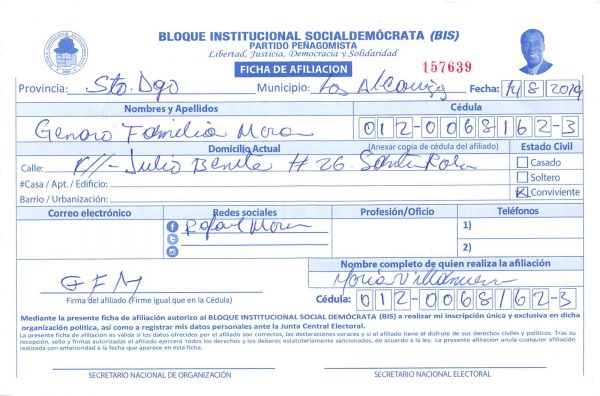 BLOQUE INSTITUCIONAL SOCIALDEMÓCRATA (BIS)
PARTIDO PEÑAGOMISTA
Libertad, Justicia, Democracia y Solidaridad
FICHA DE AFILIACION
157639
Provincia: Sto. Dgo Municipio: Los Alcarrizos Fecha: 14/8/2019
Nombres y Apellidos Cédula
Genaro Familia Mora 012-0068162-3
Domicilio Actual (Anexar copia de cédula del afiliado) Estado Civil
Calle: C// Julio Benite # 26 Santa Rosa Casado
#Casa / Apt. / Edificio: Soltero
Barrio / Urbanización: Conviviente
Correo electrónico Redes sociales Profesión/Oficio Teléfonos
Rafael Mora 1)
2)
Nombre completo de quien realiza la afiliación
GFM María Villanueva
Firma del afiliado (Firme igual que en la Cédula) Cédula: 012-0068162-3
Mediante la presente ficha de afiliación autorizo al BLOQUE INSTITUCIONAL SOCIAL DEMÓCRATA (BIS) a realizar mi inscripción única y exclusiva en dicha
organización política, así como a registrar mis datos personales ante la Junta Central Electoral.
La presente ficha de afiliación es válida si los datos ofrecidos por el afiliado son correctos, las declaraciones veraces y si el afiliado tiene el disfrute de sus derechos civiles y políticos. Tras su
recepción, sello y firmas autorizadas el afiliado ejercerá todos los derechos y los deberes estatutariamente sancionados, de acuerdo a la ley. La presente afiliación anula cualquier afiliación
realizada con anterioridad a la fecha que aparece en esta ficha.
SECRETARIO NACIONAL DE ORGANIZACIÓN SECRETARIO NACIONAL ELECTORAL